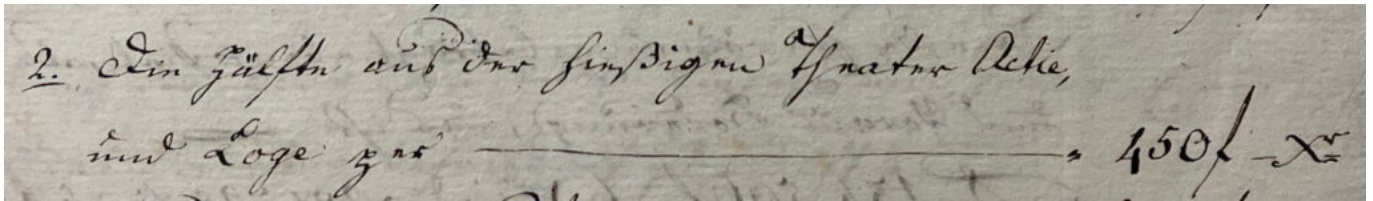 2. Die Hälfte aus der hießigen Theater Actie,
und Loge per ——— " 450f – Xr